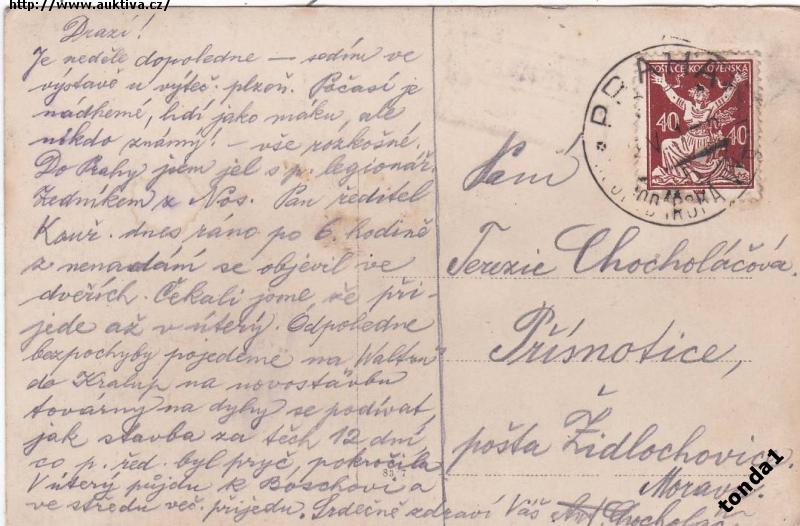 http://www.auktiva.cz/
Drazí!
Je neděle dopoledne — sedím ve
výstavě u výteč. plzeň. Počasí je
nádherné, lidí jako máku, ale
nikdo známý! — vše rozkošné.
Do Prahy jsem jel s p. legionář.
Zedníkem z Nos. Pan ředitel
Kouř. dnes ráno po 6. hodině
z nenadání se objevil ve
dveřích. Čekali jsme, že při-
jede až v úterý. Odpoledne
bezpochyby pojedeme na
do Kralup na novostavbu
továrny na dyhy se podívat,
jak stavba za těch 12 dní
co p. řed. byl pryč, pokročila
V úterý půjdu k Böschovi a
ve středu več. přijedu. Srdečně zdraví Váš Ant. Chocholáč
POŠTA ČESKOSLOVENSKÁ
40 40
PRAHA
Paní
Terezie Chocholáčová
Přísnotice,
pošta Židlochovice
Morava.
tonda1